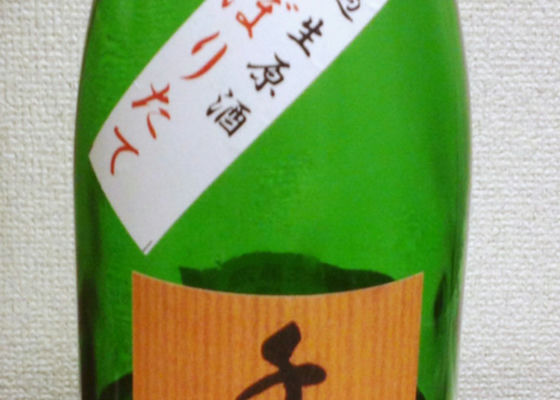 生原酒
ぼりたて